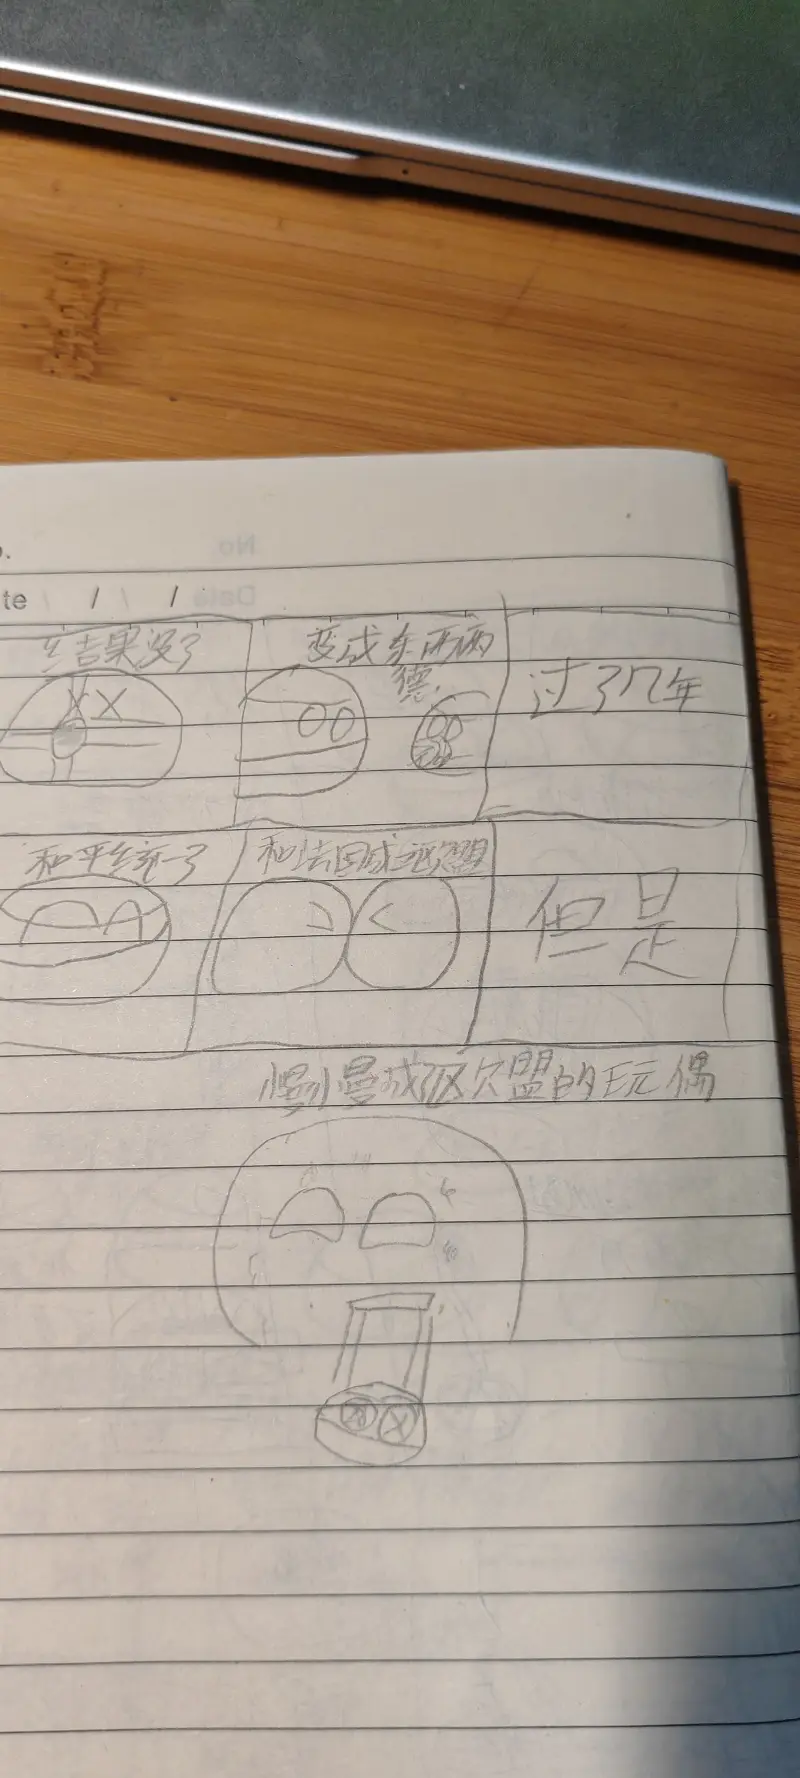 te / / /
结果没了
变成东西两
德.
过了几年
和平统一了
和法国成立欧盟
但是
慢慢成了欧盟的玩偶